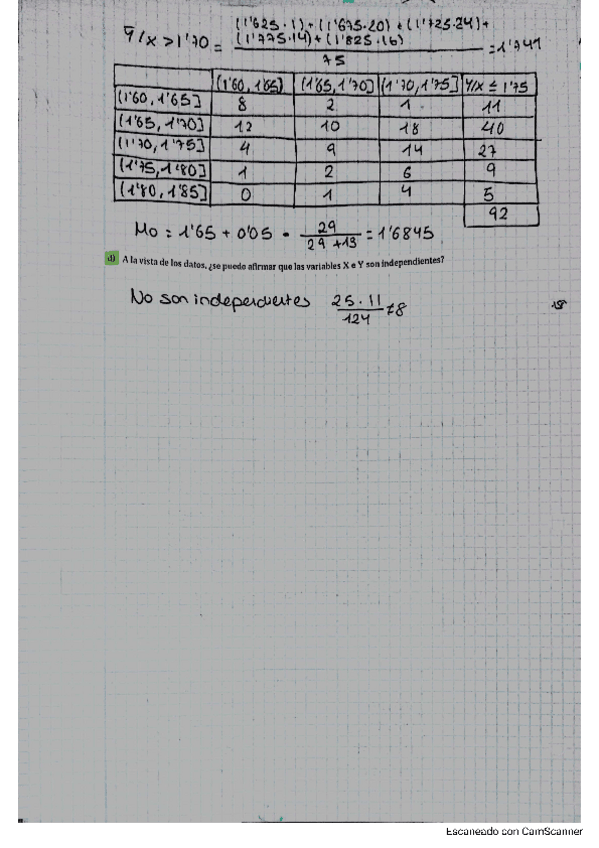 (1'625·1)+(1'675·20)+(1'725·24)+
ȳ/x>1'70 = (1'775·14)+(1'825·16) =1'741
75
(1'60, 1'65] (1'65, 1'70] (1'70, 1'75] Y/X ≤ 1'75
(1'60, 1'65] 8 2 1 11
(1'65, 1'70] 12 10 18 40
(1'70, 1'75] 4 9 14 27
(1'75, 1'80] 1 2 6 9
(1'80, 1'85] 0 1 4 5
92
Mo = 1'65 + 0'05 · 29/(29+13) = 1'6845
d) A la vista de los datos, ¿se puede afirmar que las variables X e Y son independientes?
No son independientes 25·11/124 ≠8
Escaneado con CamScanner